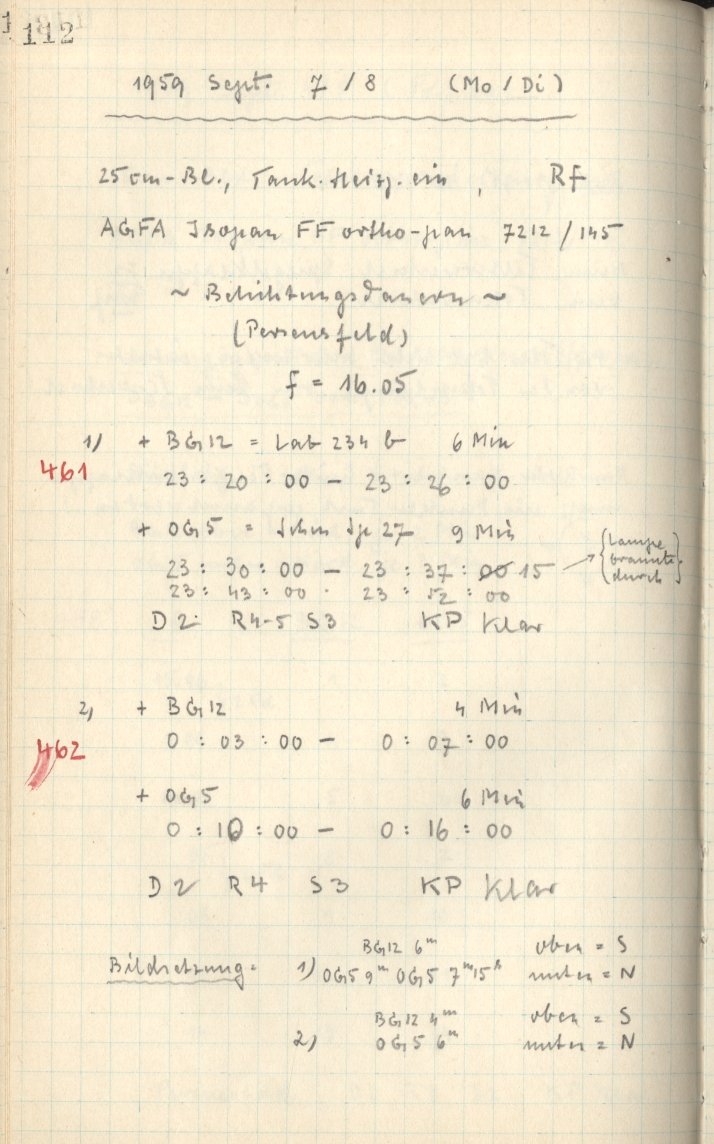 112
1959 Sept. 7 / 8 (Mo / Di)
25 cm-Bl., Tank. Heizg. ein, Rf
AGFA Isopan FF ortho-pan 7212 / 145
~ Belichtungsdauern ~
(Perseusfeld)
f = 16.05
1) + BG12 = Lab 234 b 6 Min
461
23 : 20 : 00 – 23 : 26 : 00
+ OG5 = 27 9 Min
23 : 30 : 00 – 23 : 37 : 00 15 → {Lampe
brannte
durch}
23 : 43 : 00 · 23 : 52 : 00
D2 R4-5 S3 KP Klar
2) + BG12 4 Min
462
0 : 03 : 00 – 0 : 07 : 00
+ OG5 6 Min
0 : 10 : 00 – 0 : 16 : 00
D2 R4 S3 KP Klar
BG12 6ᵐ oben = S
Bildsetzung: 1) OG5 9ᵐ OG5 7ᵐ15ˢ unten = N
BG12 4ᵐ oben = S
2) OG5 6ᵐ unten = N